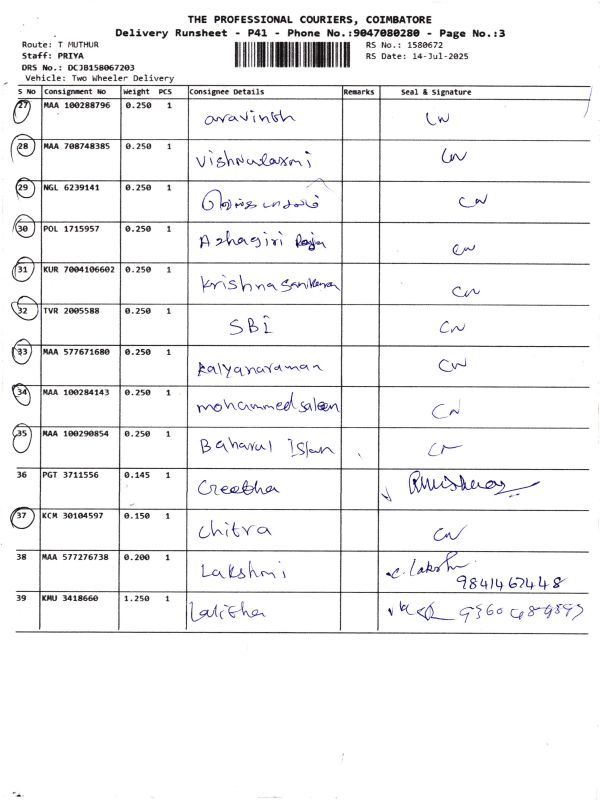 THE PROFESSIONAL COURIERS, COIMBATORE
Delivery Runsheet - P41 - Phone No.:9047080280 - Page No.:3
Route: T MUTHUR RS No.: 1580672
Staff: PRIYA RS Date: 14-Jul-2025
DRS No.: DCJB158067203
Vehicle: Two Wheeler Delivery
S No Consignment No Weight PCS Consignee Details Remarks Seal & Signature
27 MAA 100288796 0.250 1 aravinth CN
28 MAA 708748385 0.250 1 Vishnulaxmi CN
29 NGL 6239141 0.250 1 CN
30 POL 1715957 0.250 1 Azhagiri Raja CN
31 KUR 7004106602 0.250 1 Krishna Sankaran CN
32 TVR 2005588 0.250 1 SBI CN
33 MAA 577671680 0.250 1 Kalyanaraman CN
34 MAA 100284143 0.250 1 mohammed saleen CN
35 MAA 100290854 0.250 1 Baharul Islam CN
36 PGT 3711556 0.145 1 Creetha
37 KCM 30104597 0.150 1 Chitra CN
38 MAA 577276738 0.200 1 Lakshmi c. Lakshmi
9841467448
39 KMU 3418660 1.250 1 Lalitha